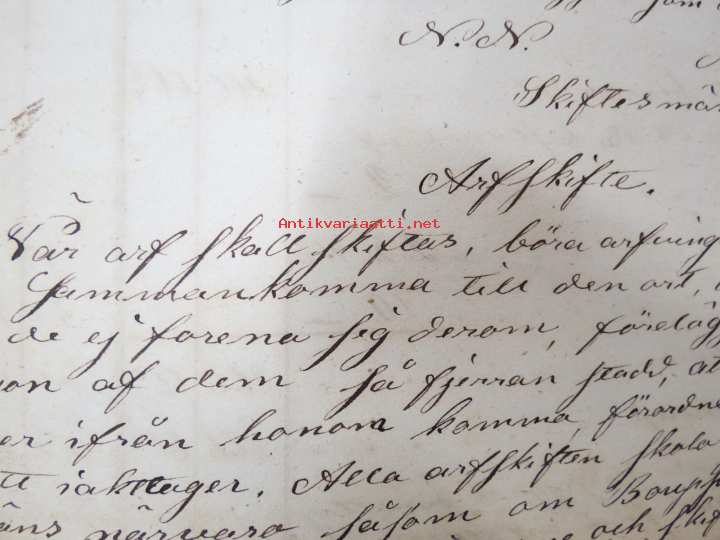 som
N. N.
Skiftesmä
Arfskifte.
Antikvariaatti.net
När arf skall skiftas, böra arfving
Sammankomma till den ort,
de ej förena sig derom, föreläg
on af dem så fjerran stadd, at
er ifrån honom komma, förordne
tt iakttager. Alla arfskiften skola
äns närvaro såsom om Boupp
och skif